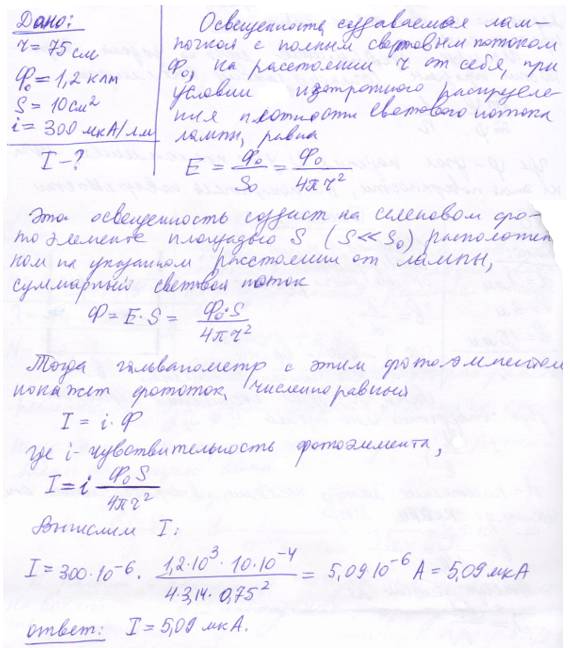 Дано:
r = 75 см
Ф₀ = 1,2 клм
S = 10 см²
i = 300 мкА/лм
I - ?
Освещенность, создаваемая лам-
почкой с полным световым потоком
Ф₀, на расстоянии r от себя, при
условии изотропного распределе-
ния плотности светового потока
лампы, равна
E = Ф₀/S₀ = Ф₀/4πr²
Эта освещенность создаст на селеновом фо-
тоэлементе площадью S (S<<S₀) расположен-
ном на указанном расстоянии от лампы,
суммарный световой поток
Ф = E·S = Ф₀·S/4πr²
Тогда гальванометр с этим фотоэлементом
покажет фототок, численно равный
I = i·Ф
где i - чувствительность фотоэлемента,
I = i Ф₀S/4πr²
Вычислим I:
I = 300·10⁻⁶ · 1,2·10³·10·10⁻⁴/4·3,14·0,75² = 5,09·10⁻⁶ A = 5,09 мкА
ответ: I = 5,09 мкА.